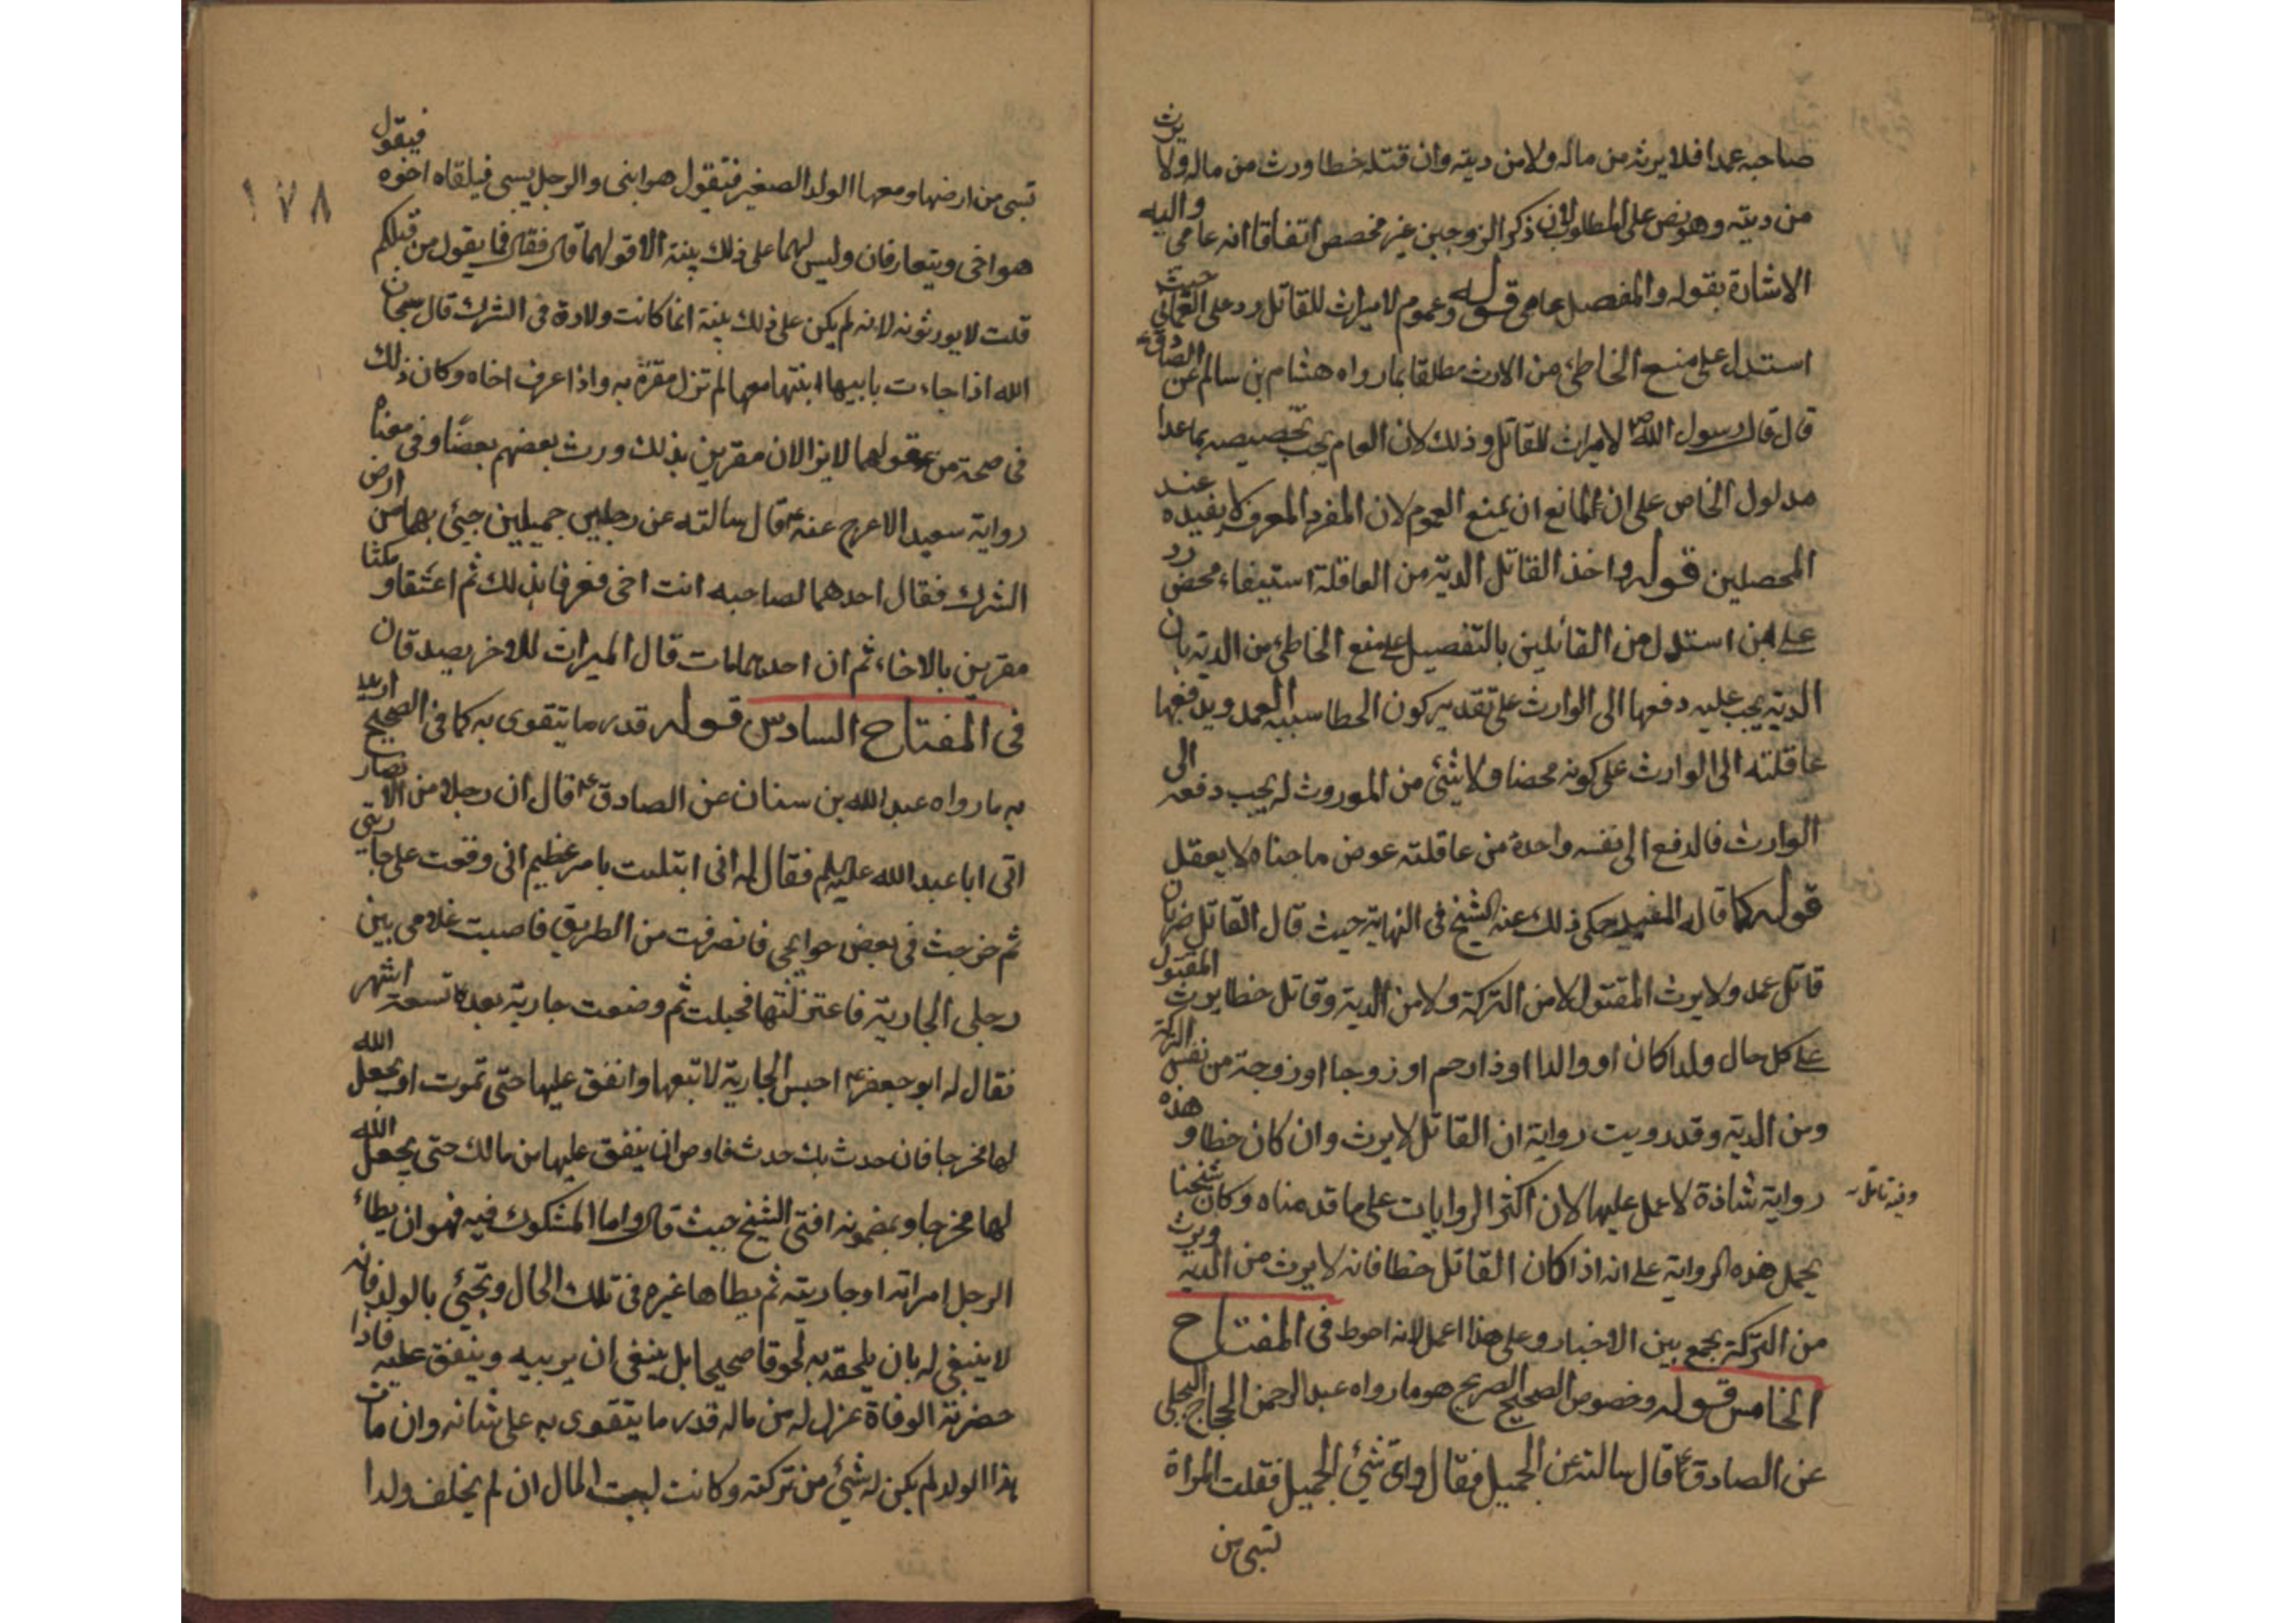 صاحبه عمدا فلا يرثه من ماله ولا من ديته وان قتله خطا ورث من ماله ولا يرث
من ديته وهو نص على المطلوب لان ذكر الزوجين غير مخصص اتفاقا انه عامى واليه
الاشارة بقوله والمفصل عامى قوله وعموم لا ميراث للقاتل رد على العمانى حيث
استدل على منع الخاطئ من الارث مطلقا بما رواه هشام بن سالم عن الصادق ع
قال قال رسول الله ص لا ميراث للقاتل وذلك لان العام يجب تخصيصه بما عدا
مدلول الخاص على ان المانع ان يمنع العموم لان المفرد المعرف لا يفيده عند
المحصلين قوله واخذ القاتل الدية من العاقلة استيفاء محض رد
على من استدل من القائلين بالتفصيل على منع الخاطئ من الدية بان
الدية يجب عليه دفعها الى الوارث على تقدير كون الخطا شبيه العمد ويدفعها
عاقلته الى الوارث على كونه محضا ولا شئ من الموروث له يجب دفعه الى
الوارث فالدفع الى نفسه واخذه من عاقلته عوض ما جناه لا يعقل
قوله كما قاله المفيد حكى ذلك عنه الشيخ فى النهاية حيث قال القاتل ضربان
قاتل عمد ولا يرث المقتول لا من التركة ولا من الدية وقاتل خطا يرث المقتول
على كل حال ولدا كان او والدا او ذا رحم او زوجا او زوجة من نفس التركة
ومن الدية وقد رويت رواية ان القاتل لا يرث وان كان خطا وهذه
رواية شاذة لا عمل عليها لان اكثر الروايات على ما قدمناه وكان شيخنا
وفيه تامل
يحمل هذه الرواية على انه اذا كان القاتل خطا فانه لا يرث من الدية ويرث
من التركة بجمع بين الاخبار وعلى هذا اعمل لانه احوط فى المفتاح
الخامس قوله وخصوص الصحيح الصريح هو ما رواه عبد الرحمن الحجاج البجلى
عن الصادق ع قال سالته عن الحميل فقال واى شئ الحميل فقلت المراة
تسبى من
١٧٨
تسبى من ارضها ومعها الولد الصغير فتقول هو ابنى والرجل يسبى فيلقاه اخوه فيقول
هو اخى ويتعارفان وليس لهما على ذلك بينة الا قولهما قال فقال فما يقول من قبلكم
قلت لا يورثونه لانه لم يكن على ذلك بينة انما كانت ولادة فى الشرك قال سبحان
الله اذا جاءت بابيها ابنتها معها لم تزل مقرة به واذا عرف اخاه وكان ذلك
فى صحة من عقولهما لا يزالان مقرين بذلك ورث بعضهم بعضا وفى معناه
رواية سعيد الاعرج عنه ع قال سالته عن رجلين حميلين جيئ بهما من ارض
الشرك فقال احدهما لصاحبه انت اخى فعرفا بذلك ثم اعتقا ومكثا
مقرين بالاخاء ثم ان احدهما مات قال الميراث للاخر يصدقان
فى المفتاح السادس قوله قدر ما يتقوى به كما فى الصحيح اريد
به ما رواه عبد الله بن سنان عن الصادق ع قال ان رجلا من الانصار
اتى ابا عبد الله عليه السلم فقال له انى ابتليت بامر عظيم انى وقعت على جاريتى
ثم خرجت فى بعض حوايجى فانصرفت من الطريق فاصبت غلامى بين
رجلى الجارية فاعتزلتها فحبلت ثم وضعت جارية بعده تسعة اشهر
فقال له ابو جعفر ع احبس الجارية لا تبعها وانفق عليها حتى تموت او يجعل الله
لها مخرجا فان حدث بك حدث فاوص ان ينفق عليها من مالك حتى يجعل الله
لها مخرجا وبمضمونه افتى الشيخ حيث قال واما المشكوك فيه فهو ان يطاء
الرجل امراته او جاريته ثم يطاها غيره فى تلك الحال وتجيئ بالولد فانه
لا ينبغى له بان يلحقه به لحوقا صحيحا بل ينبغى ان يربيه وينفق عليه فاذا
حضرته الوفاة عزل له من ماله قدر ما يتقوى به على شانه وان مات
هذا الولد لم يكن له شئ من تركته وكانت لبيت المال ان لم يخلف ولدا